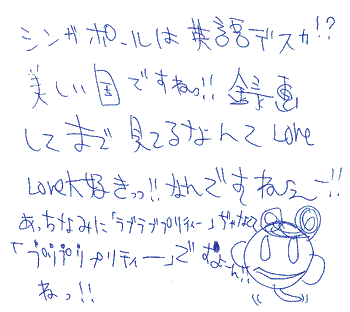 シンガポールは英語デスカ!?
美しい国ですねっ!!録画
してまで見てるなんてLove
Love大好きっ!!なんですねぇー!!
あっちなみに「ラブラブプリティー」ぢゃなくて
「プリプリプリティー」ですよーん!!
ねっ!!